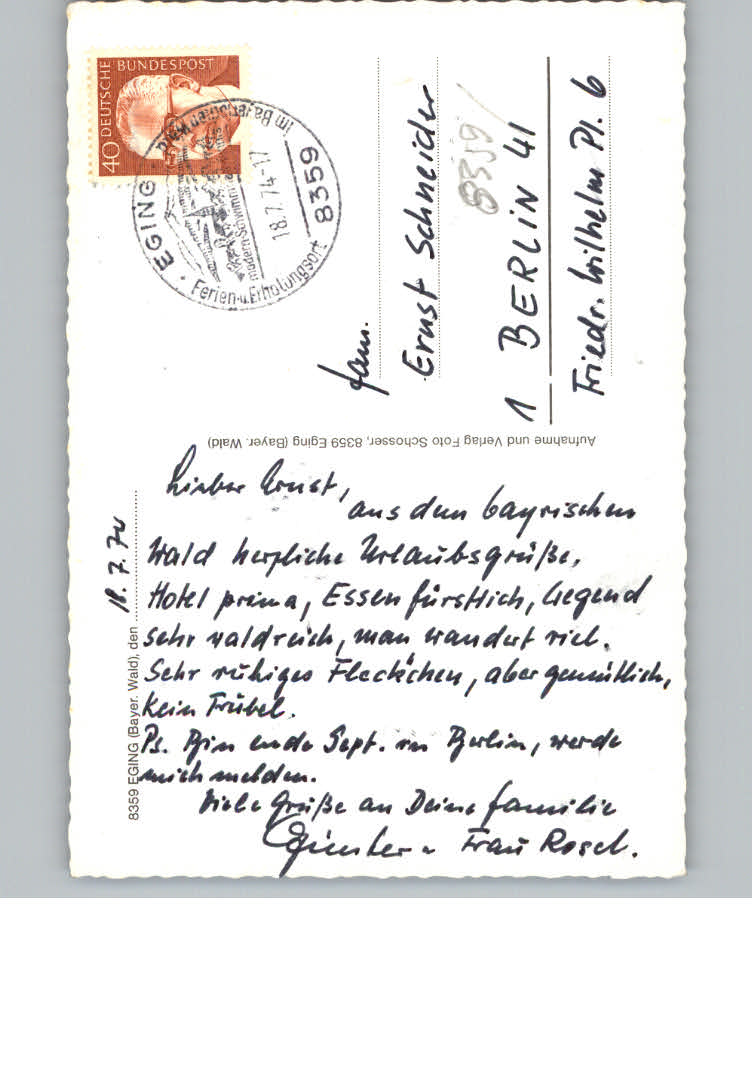 DEUTSCHE BUNDESPOST
40
EGING
im Bayerischen Wald
modern. Schwimmbad
18.7.74-17
8359
Ferien-u.Erholungsort
8359/
Fam.
Ernst Schneider
1 BERLIN 41
Friedr. Wilhelm Pl. 6
Aufnahme und Verlag Foto Schosser, 8359 Eging (Bayer. Wald)
8359 EGING (Bayer. Wald), den 18.7.74
Lieber Ernst,
aus dem bayrischen
Wald herzliche Urlaubsgrüße,
Hotel prima, Essen fürstlich, Gegend
sehr waldreich, man wandert viel.
Sehr ruhiges Fleckchen, aber gemütlich,
kein Trubel.
Ps. Bin ende Sept. in Berlin, werde
mich melden.
Viele Grüße an Deine Familie
Günter u Frau Rosel.